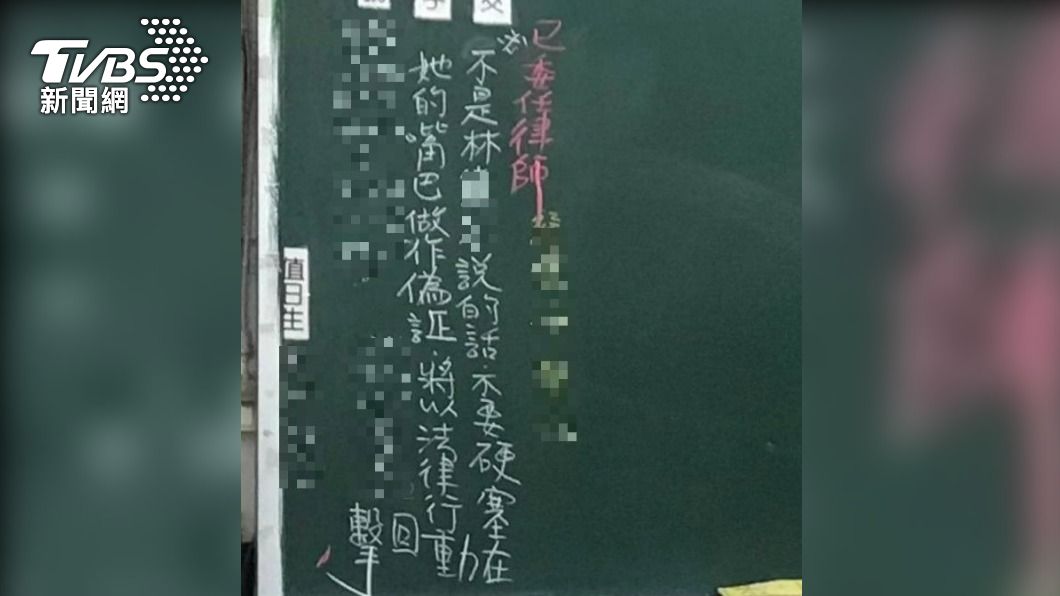 TVBS
新聞網
已委任律師
不是林說的話.不要硬塞在
她的嘴巴做作偽証.將以法律行動
回
擊
值日生